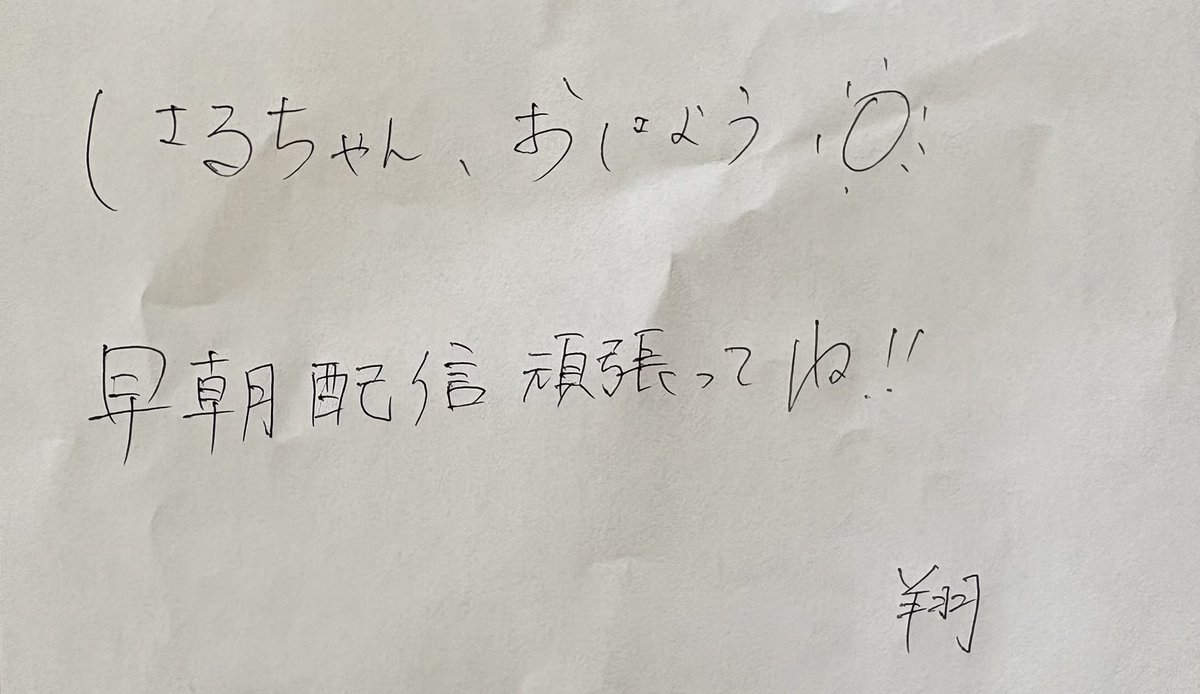 はるちゃん、おはよう
早朝配信頑張ってね!!
翔